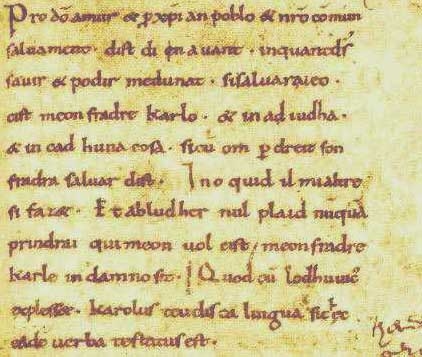 Pro dõ amur & p xp̃ian poblo & nr̃o cõmun
saluament. dist di en auant. inquantd̃s
sauir & podir medunat. sisaluaraieo.
cist meon fradre karlo. & in ad iudha.
& in cad huna cosa. sicũ om p dreit son
fradra saluar dist. Ino quid il mialtre
si faz&. Et abludher nul plaid nũquã
prindrai qui meon uol cist meon fradre
karle in damno sit. Quod cũ lodhuuic̃
expless&. karolus teudisca lingua sic ec
eadẽ uerba testatus est.